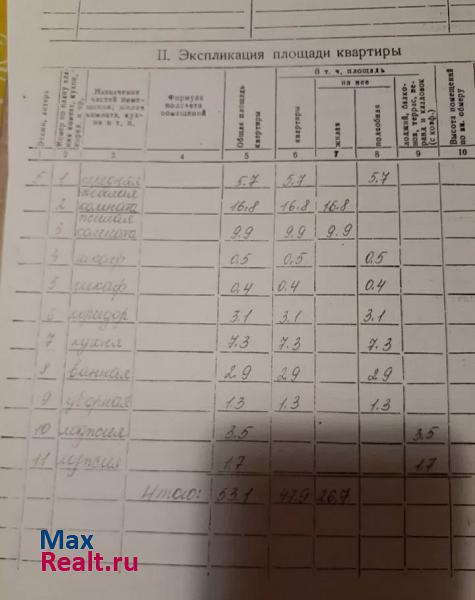 II. Экспликация площади квартиры
Назначение частей поме- щения: жилая комната, кух- ня и т. п.
Формула подсчета помещений
Общая площадь квартиры
В т. ч. площадь
квартиры
из нее
жилая
подсобная
лоджий, балко- нов, террас, ве- ранд и кладовок (с коэф.)
Высота помещений по вн. обмеру
3 4 5 6 7 8 9 10
1 5.7 5.7 5.7
2 жилая комната 16.8 16.8 16.8
3 жилая комната 9.9 9.9 9.9
4 шкаф 0.5 0.5 0.5
5 шкаф 0.4 0.4 0.4
6 коридор 3.1 3.1 3.1
7 кухня 7.3 7.3 7.3
8 ванная 2.9 2.9 2.9
9 уборная 1.3 1.3 1.3
10 лоджия 3.5 3.5
11 лоджия 1.7 1.7
Итого: 53.1 47.9 26.7
Max
Realt.ru